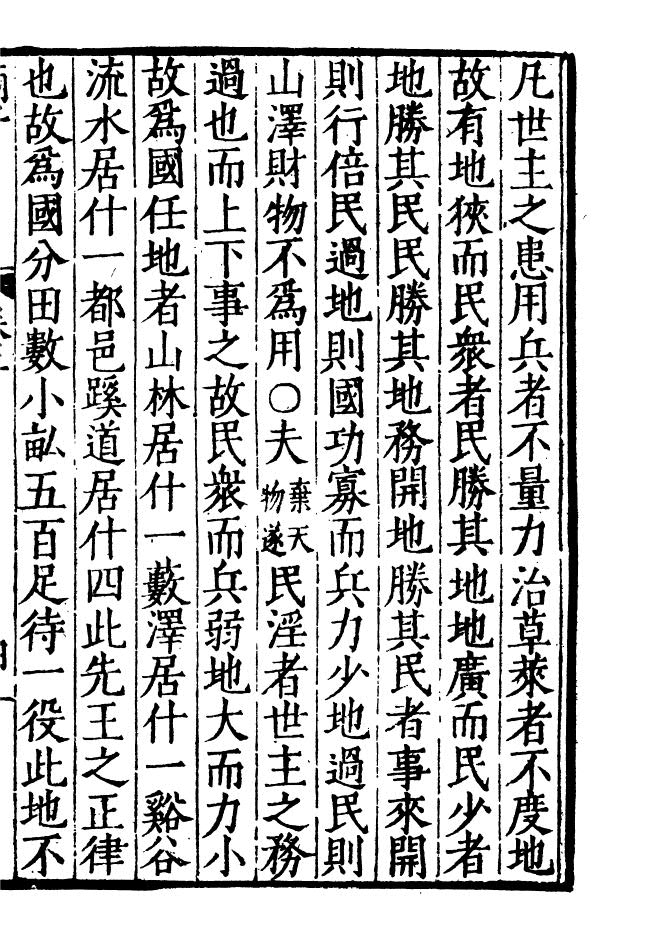 凡世主之患用兵者不量力治草萊者不度地
故有地狹而民衆者民勝其地地廣而民少者
地勝其民民勝其地務開地勝其民者事來開
則行倍民過地則國功寡而兵力少地過民則
山澤財物不爲用○夫棄天物遂民淫者世主之務
過也而上下事之故民衆而兵弱地大而力小
故爲國任地者山林居什一藪澤居什一谿谷
流水居什一都邑蹊道居什四此先王之正律
也故爲國分田數小畝五百足待一役此地不